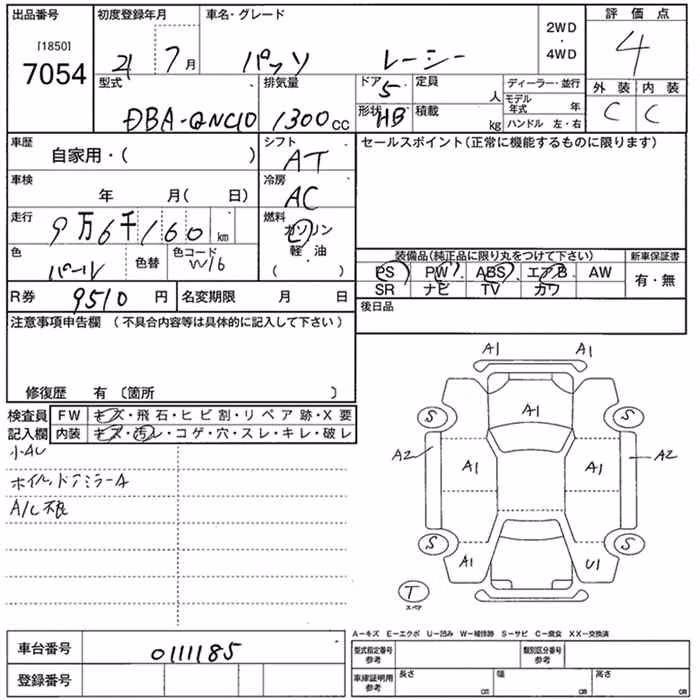 出品番号
[1850]
7054
初度登録年月
21 7月
車名・グレード
パッソ レーシー
2WD
・
4WD
評価点
4
外装 内装
C C
型式
DBA-QNC10
排気量
1300cc
ドア 5
形状 HB
定員 人
積載 kg
ディーラー・並行
モデル年式 年
ハンドル 左・右
車歴
自家用・( )
シフト
AT
車検
年 月( 日)
冷房
AC
走行
9万6千160km
燃料
ガソリン
軽・油
( ・ )
色
パール
色替
色コード
W16
R券 9510円
名変期限 月 日
セールスポイント(正常に機能するものに限ります)
装備品(純正品に限り丸をつけて下さい)
PS PW ABS エアB AW
SR ナビ TV カワ
新車保証書
有・無
後日品
注意事項申告欄 (不具合内容等は具体的に記入して下さい)
修復歴 有 〔箇所 〕
検査員
記入欄
FW キズ・飛石・ヒビ割・リペア跡・X要
内装 キズ・汚レ・コゲ・穴・スレ・キレ・破レ
小AU
A/C不良
A1 A1
A1
S S
A2 A1 A1 A2
S S
A1 U1
T
スペア
A-キズ E-エクボ U-凹み W-補修跡 S-サビ C-腐食 XX-交換済
車台番号
0111185
登録番号
型式指定番号
参考
類別区分番号
参考
車庫証明用
参考
長さ cm
幅 cm
高さ cm